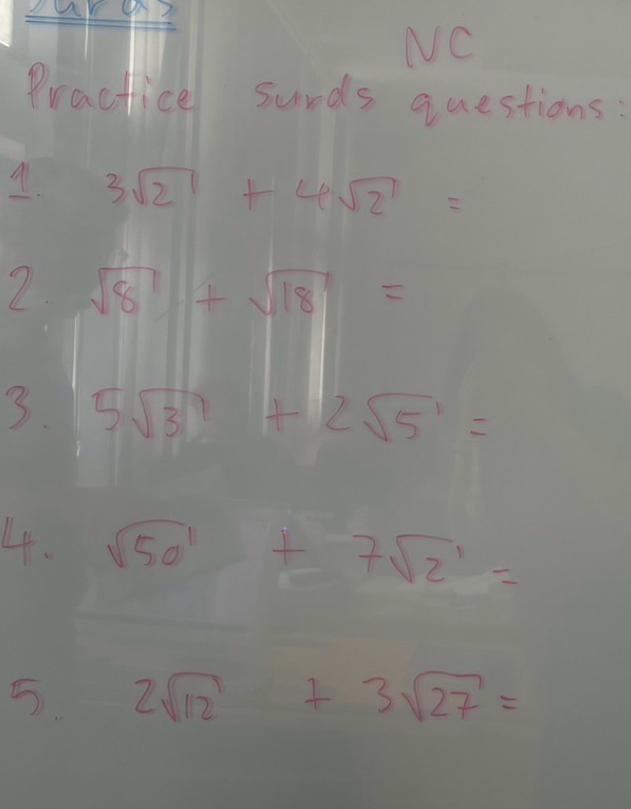 surds
NC
Practice surds questions:
1. 3√2 + 4√2 =
2. √8 + √18 =
3. 5√3 + 2√5 =
4. √50 + 7√2 =
5. 2√12 + 3√27 =